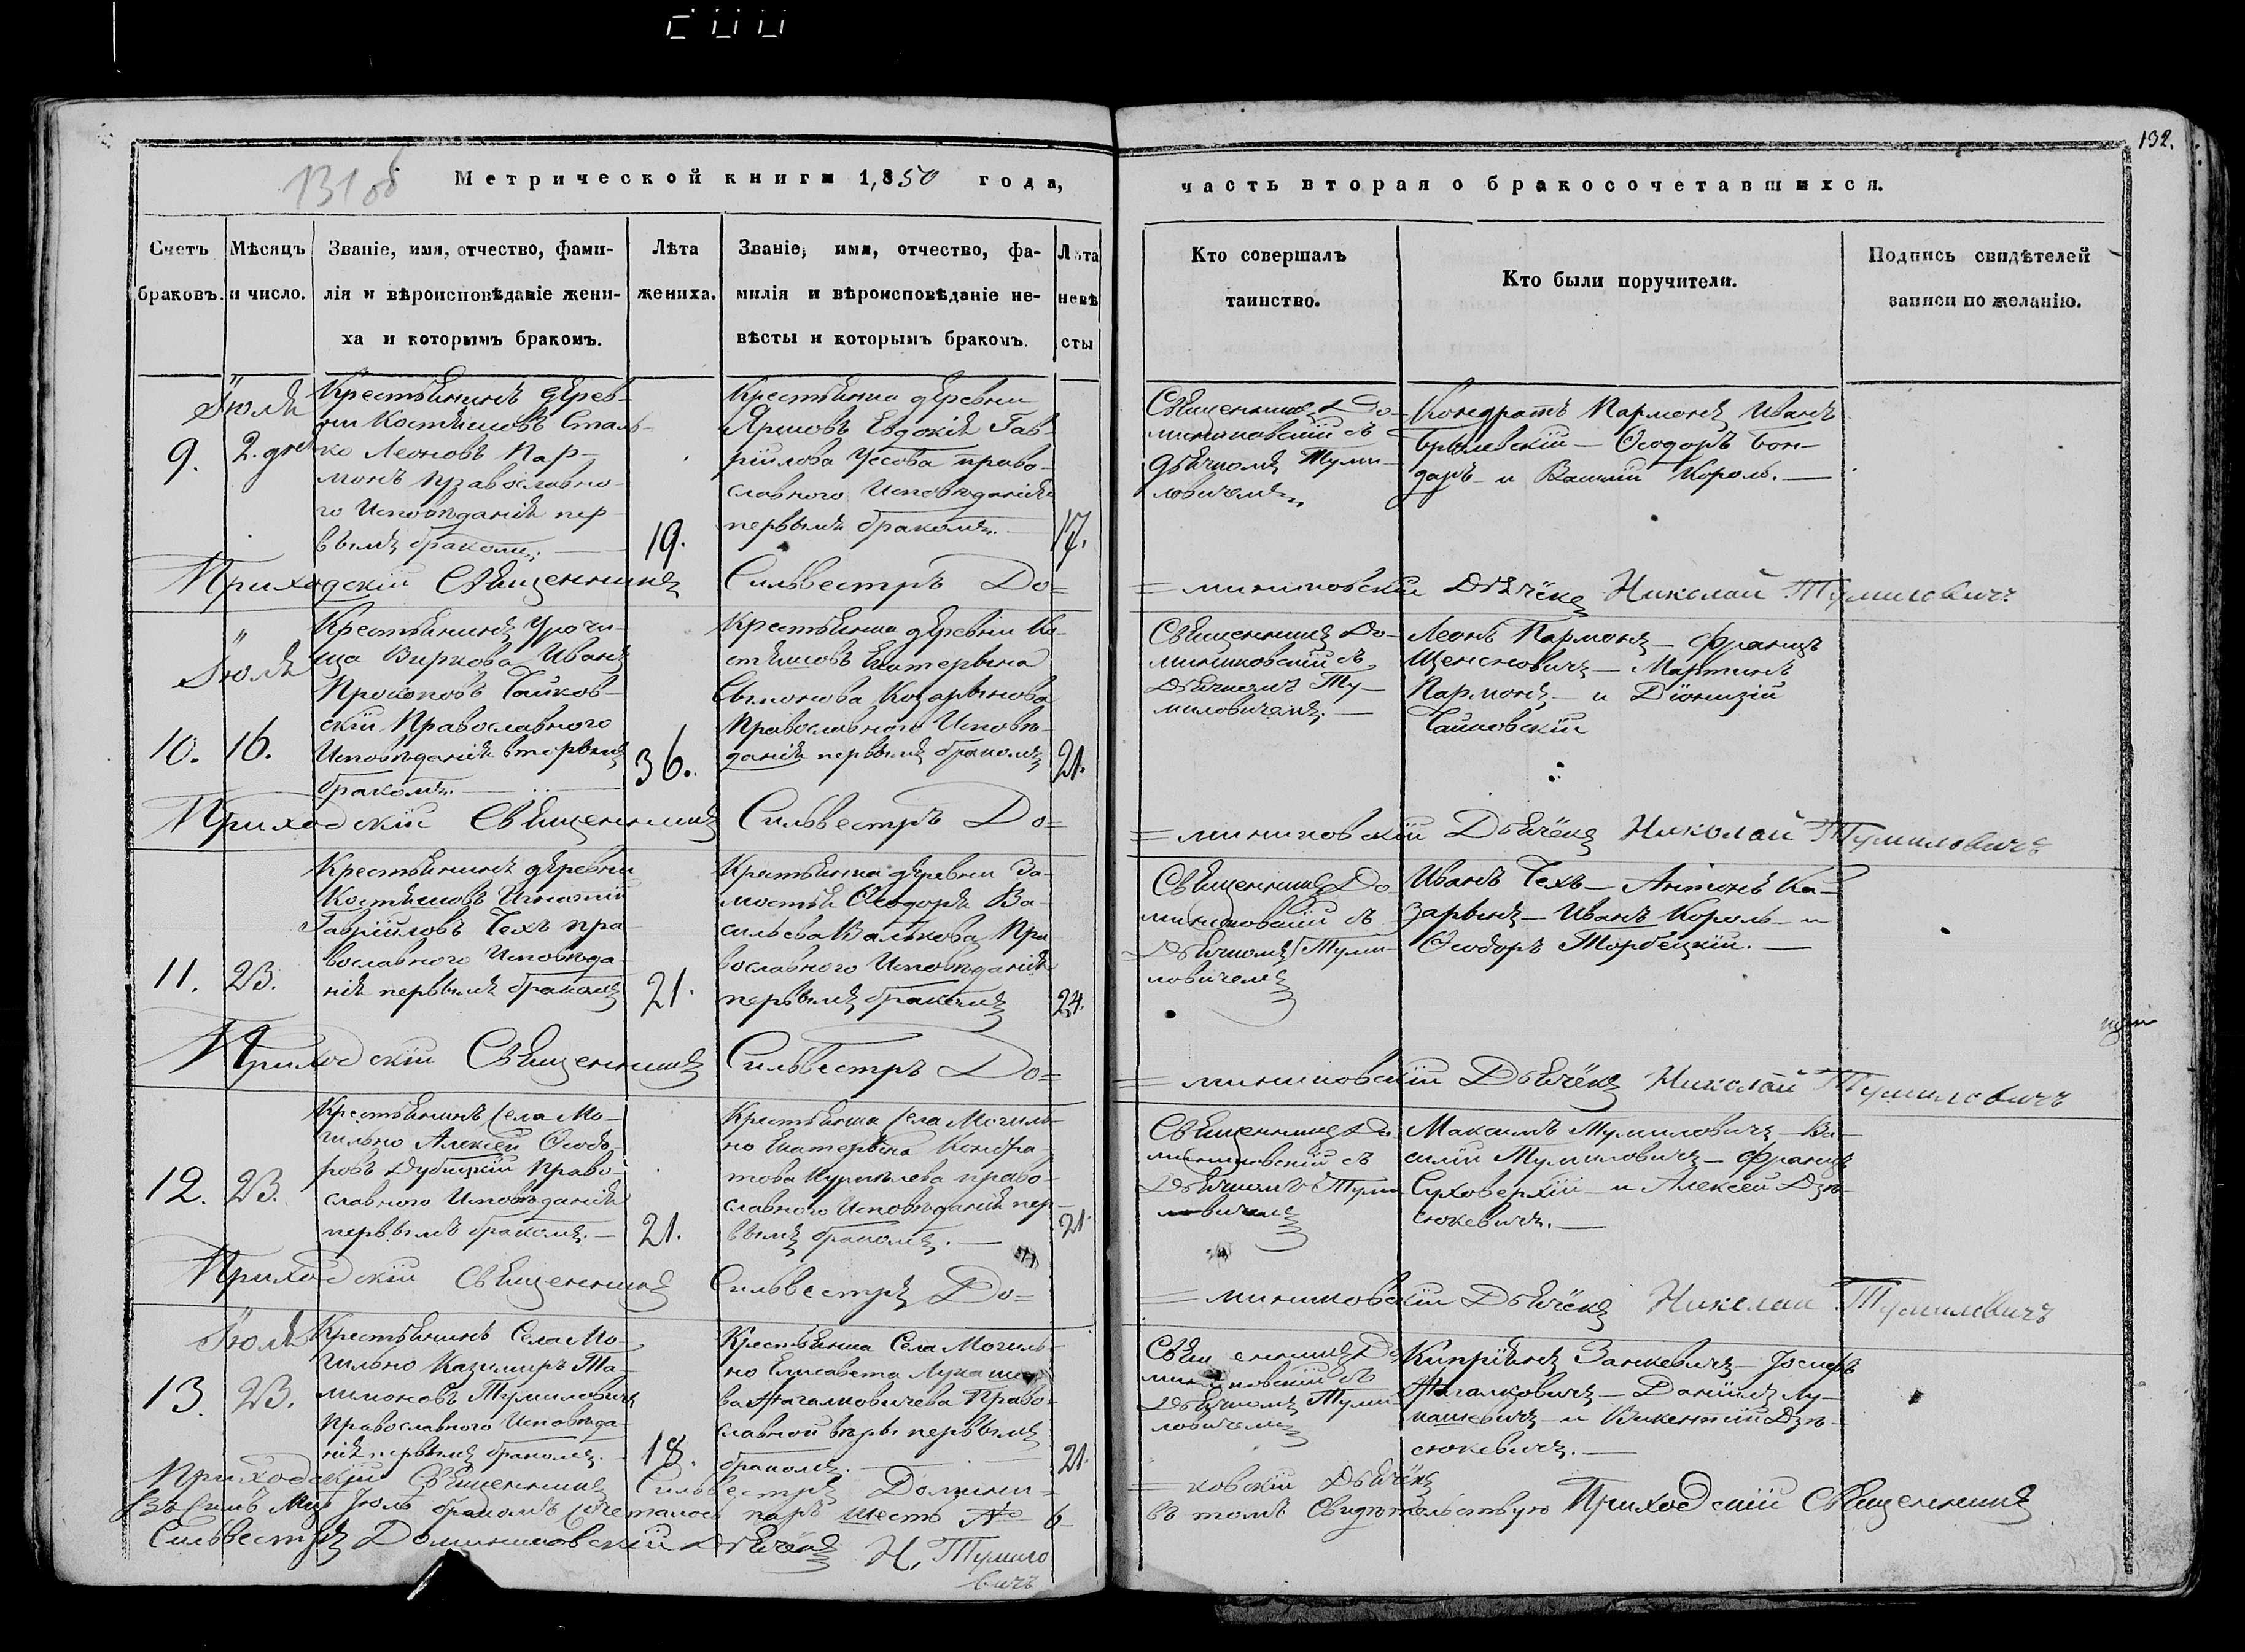 132.
131 об
Метрической книги 1,850 года,
часть вторая о бракосочетавшихся.
Счетъ
браковъ.
Мѣсяцъ
и число.
Званіе, имя, отчество, фами-
лія и вѣроисповѣданіе жени-
ха и которымъ бракомъ.
Лѣта
жениха.
Званіе, имя, отчество, фа-
милія и вѣроисповѣданіе не-
вѣсты и которымъ бракомъ.
Лѣта
невѣ
сты
Кто совершалъ
таинство.
Кто были поручители.
Подпись свидѣтелей
записи по желанію.
9.
Іюля
2. дня
Крестьянинъ дерев-
ни Костѣшовъ
Леоновъ Пар-
монъ Православно-
го Исповѣданія пер-
вымъ бракомъ.
19.
Крестьянка деревни
Евдокія Гав-
ріилова Усова право-
славного Исповѣданія
первымъ бракомъ.
17.
Священникъ До-
миниковскій съ
Дьячкомъ Туми-
ловичемъ
Кондратъ Пармонъ Иванъ
Брылевскій — Ѳеодоръ Бон-
даръ и Василій Король. —
Приходскій Священникъ Сильвестръ До=
=миниковскій Дьячёкъ Николай Тумиловичъ
10.
Іюля
16.
Крестьянинъ Урочи-
ща Виркова Иванъ
Прокоповъ Чайков-
скій Православного
Исповѣданія вторымъ
бракомъ.
36.
Крестьянка деревни Ко-
стѣшовъ Екатерына
Сымонова Козарынова
Православного Исповѣ-
данія первымъ бракомъ
21.
Священникъ До-
миниковскій съ
Дьячкомъ Ту-
миловичемъ. —
Леонъ Пармонъ — Францъ
Щенсновичъ — Мартинъ
Пармонъ — и Діонизій
Чайковскій
Приходскій Священникъ Сильвестръ До=
=миниковскій Дьячёкъ Николай Тумиловичъ
11.
23.
Крестьянинъ деревни
Костѣшовъ Игнатій
Гавріиловъ Чехъ пра-
вославного Исповѣда-
нія первымъ бракомъ
21.
Крестьянка деревни За-
мостья Ѳеодора Ва-
сильева Валькова Пра
вославного Исповѣданія
первымъ бракомъ
24.
Священникъ До
миниковскій съ
Дьячкомъ Туми-
ловичемъ
Иванъ Чехъ — Антонъ Ка-
зарынъ — Иванъ Король — и
Ѳеодоръ Торбецкій. —
Приходскій Священникъ Сильвестръ До=
=миниковскій Дьячёкъ Николай Тумиловичъ
12.
23.
Крестьянинъ Села Мо-
гильно Алексѣй Ѳеодо-
ровъ Дубицкій Право-
славного Исповѣданія
первымъ бракомъ. —
21.
Крестьянка Села Могиль-
но Екатерына
това православного Исповѣданія пер-
вымъ бракомъ. —
21
Священникъ До
миниковскій съ
Дьячкомъ Туми
ловичемъ
Максимъ Тумиловичъ — Ва-
силій Тумиловичъ — Францъ
Суховерхій — и Алексѣй Дзѣ-
сюкевичъ. —
Приходскій Священникъ Сильвестръ До=
=миниковскій Дьячёкъ Николай Тумиловичъ
13.
Іюля
23.
Крестьянинъ Села Мо-
гильно Казимиръ Фи-
лимоновъ Тумиловичъ
Православного Исповѣда-
нія первымъ бракомъ. —
18.
Крестьянка Села Могиль-
но Елисавета
Православной вѣры первымъ
бракомъ. —
21.
Священникъ До
миниковскій съ
Дьячкомъ Туми-
ловичемъ
Кипріянъ Занкевичъ — Іосифъ
Жагалковичъ — Даніилъ Лу-
кашевичъ — и Викентій Дзѣ-
сюкевичъ. —
Приходскій Священникъ Сильвестръ Домини=
=ковскій Дьячёкъ
Въ семъ Мцѣ Іюль бракомъ сочеталось паръ шесть № 6
въ томъ Свидѣтельствую Приходскій Священникъ
Сильвестръ Доминиковскій Дьячёкъ Н. Тумило
вичъ